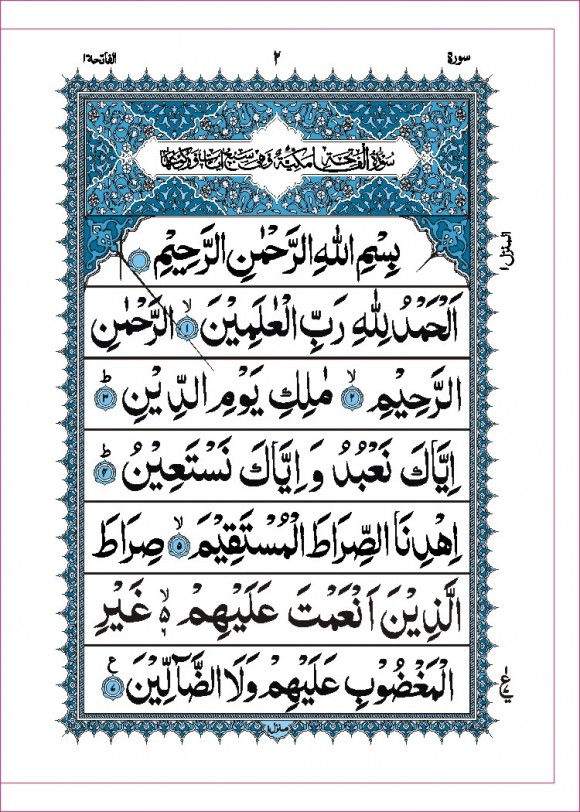 سورة ٢ الفاتحة ١
سورة الفاتحة مكية وهي سبع ايات
بِسْمِ اللهِ الرَّحْمٰنِ الرَّحِيْمِ
اَلْحَمْدُ لِلّٰهِ رَبِّ الْعٰلَمِيْنَ ۙ ١ الرَّحْمٰنِ
الرَّحِيْمِ ۙ ٢ مٰلِكِ يَوْمِ الدِّيْنِ ؕ ٣
اِيَّاكَ نَعْبُدُ وَ اِيَّاكَ نَسْتَعِيْنُ ؕ ٤
اِهْدِنَا الصِّرَاطَ الْمُسْتَقِيْمَ ۙ ٥ صِرَاطَ
الَّذِيْنَ اَنْعَمْتَ عَلَيْهِمْ ۙ ٥ غَيْرِ
الْمَغْضُوْبِ عَلَيْهِمْ وَلَا الضَّآلِّيْنَ ع ٧
المنزل ١
منزل ١